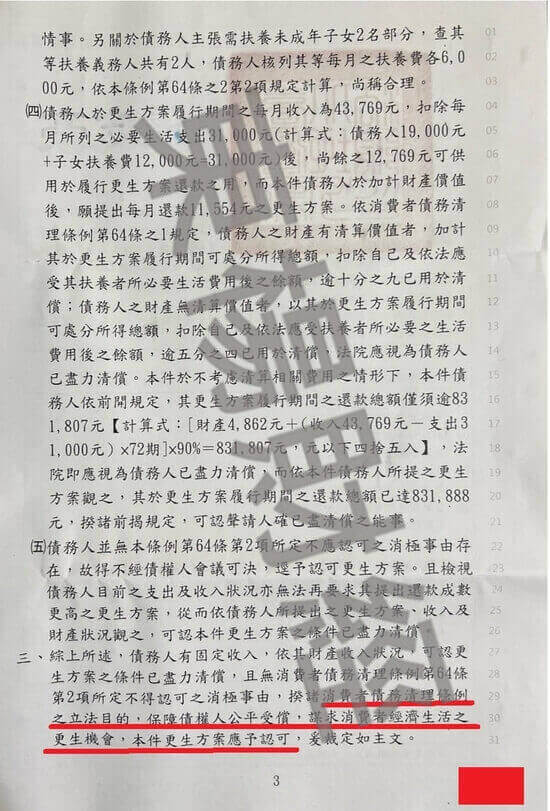 情事。另關於債務人主張需扶養未成年子女2名部分，查其 01
等扶養義務人共有2人，債務人核列其等每月之扶養費各6,0 02
00元，依本條例第64條之2第2項規定計算，尚稱合理。 03
㈣債務人於更生方案履行期間之每月收入為43,769元，扣除每 04
月所列之必要生活支出31,000元(計算式：債務人19,000元 05
+子女扶養費12,000元=31,000元)後，尚餘之12,769元可供 06
用於履行更生方案還款之用，而本件債務人於加計財產價值 07
後，願提出每月還款11,554元之更生方案。依消費者債務清 08
理條例第64條之1規定，債務人之財產有清算價值者，加計 09
其於更生方案履行期間可處分所得總額，扣除自己及依法應 10
受其扶養者所必要生活費用後之餘額，逾十分之九已用於清 11
償；債務人之財產無清算價值者，以其於更生方案履行期間 12
可處分所得總額，扣除自己及依法應受扶養者所必要之生活 13
費用後之餘額，逾五分之四已用於清償，法院應視為債務人 14
已盡力清償。本件於不考慮清算相關費用之情形下，本件債 15
務人依前開規定，其更生方案履行期間之還款總額僅須逾83 16
1,807元【計算式：[財產4,862元+(收入43,769元－支出3 17
1,000元) ×72期]×90%=831,807元，元以下四捨五入】，法 18
院即應視為債務人已盡力清償，而依本件債務人所提之更生 19
方案觀之，其於更生方案履行期間之還款總額已達831,888 20
元，揆諸前揭規定，可認聲請人確已盡清償之能事。 21
㈤債務人並無本條例第64條第2項所定不應認可之消極事由存 22
在，故得不經債權人會議可決，逕予認可更生方案。且檢視 23
債務人目前之支出及收入狀況亦無法再要求其提出還款成數 24
更高之更生方案，從而依債務人所提出之更生方案、收入及 25
財產狀況觀之，可認本件更生方案之條件已盡力清償 26
三、綜上所述，債務人有固定收入，依其財產收入狀況，可認更 27
生方案之條件已盡力清償，且無消費者債務清理條例第64條 28
第2項所定不得認可之消極事由，揆諸消費者債務清理條例 29
之立法目的，保障債權人公平受償，謀求消費者經濟生活之 30
更生機會，本件更生方案應予認可，爰裁定如主文。 31
3